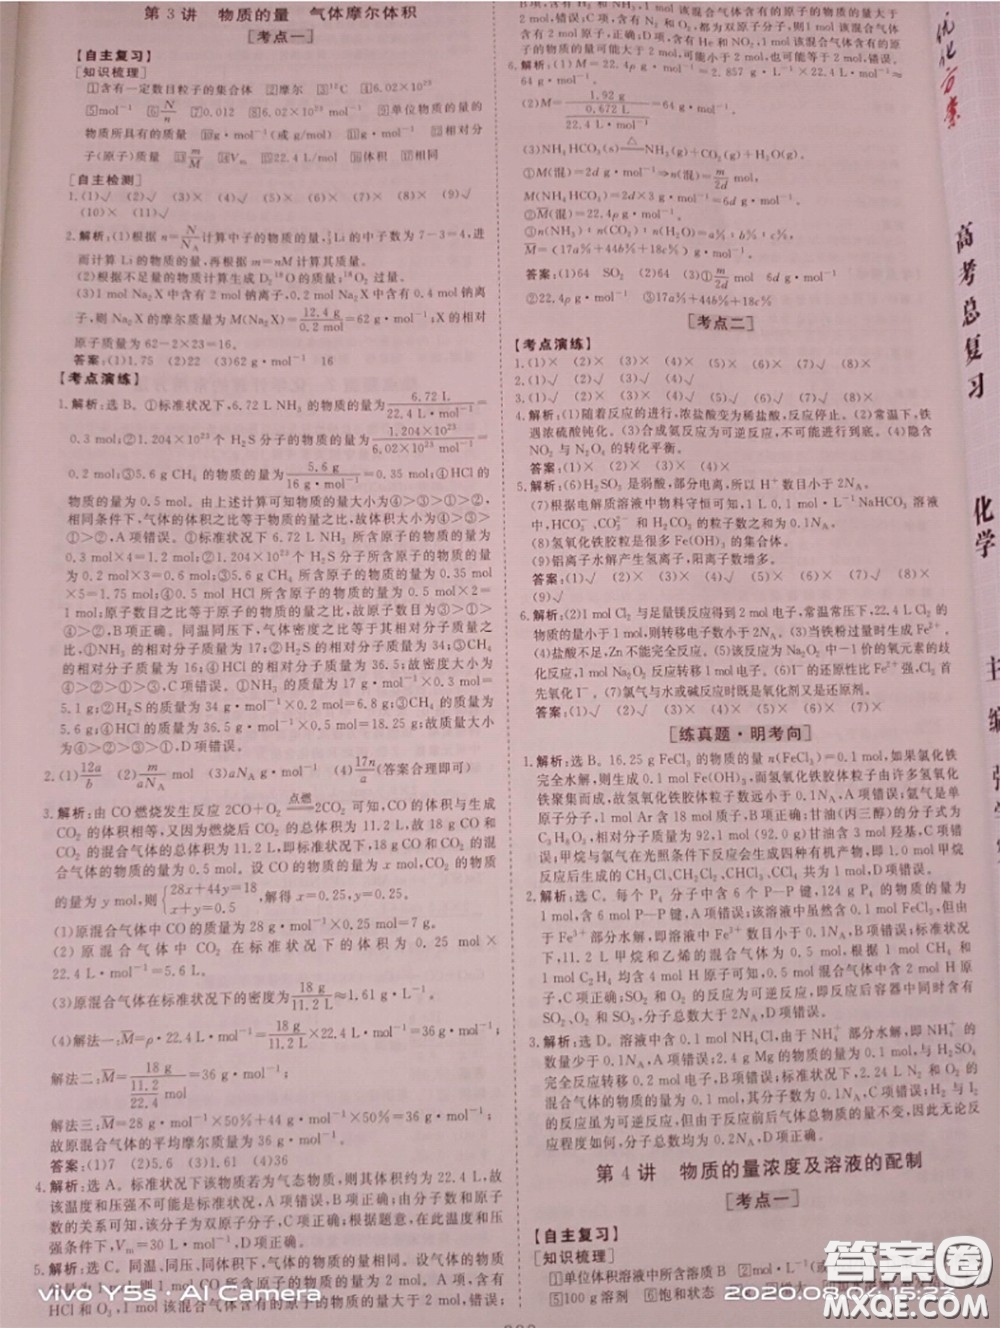 第3讲 物质的量 气体摩尔体积
[考点一]
【自主复习】
[知识梳理]
①含有一定数目粒子的集合体 ②摩尔 ③¹²C ④6.02×10²³
⑤mol⁻¹ ⑥N/n ⑦0.012 ⑧6.02×10²³ ⑨单位物质的量的
物质所具有的质量 ⑩g·mol⁻¹(或 g/mol) ⑪g·mol⁻¹ ⑫相对分
子(原子)质量 ⑬m/M ⑭Vm ⑮22.4 L·mol⁻¹ ⑯体积 ⑰相同
[自主检测]
1.(1)√ (2)√ (3)× (4)× (5)× (6)× (7)× (8)× (9)√
(10)× (11)√
2.解析:(1)根据 n=N/NA计算中子的物质的量,⁷₃Li 的中子数为 7-3=4,进
而计算 Li 的物质的量,再根据 m=nM 计算其质量。
(2)根据不足量的物质计算生成 D₂¹⁸O 的质量,¹⁸O₂ 过量。
(3)1 mol Na₂X 中含有 2 mol 钠离子,0.2 mol Na₂X 中含有 0.4 mol 钠离
子,则 Na₂X 的摩尔质量为 M(Na₂X)=12.4 g/0.2 mol=62 g·mol⁻¹;X 的相对
原子质量为 62-2×23=16。
答案:(1)1.75 (2)22 (3)62 g·mol⁻¹ 16
【考点演练】
1.解析:选 B。①标准状况下,6.72 L NH₃ 的物质的量为6.72 L/22.4 L·mol⁻¹=
0.3 mol;②1.204×10²³个 H₂S 分子的物质的量为1.204×10²³/6.02×10²³ mol⁻¹=
0.2 mol;③5.6 g CH₄ 的物质的量为5.6 g/16 g·mol⁻¹=0.35 mol;④HCl 的
物质的量为 0.5 mol。由上述计算可知物质的量大小为④>③>①>②,
相同条件下,气体的体积之比等于物质的量之比,故体积大小为④>③
>①>②,A 项错误。①标准状况下 6.72 L NH₃ 所含原子的物质的量
为 0.3 mol×4=1.2 mol;②1.204×10²³ 个 H₂S 分子所含原子的物质的量为
0.2 mol×3=0.6 mol;③5.6 g CH₄ 所含原子的物质的量为 0.35 mol
×5=1.75 mol;④0.5 mol HCl 所含原子的物质的量为 0.5 mol×2=
1 mol;原子数目之比等于原子物质的量之比,故原子数目大小为③>①>
④>②,B 项正确。同温同压下,气体密度之比等于其相对分子质量之
比,①NH₃ 的相对分子质量为 17;②H₂S 的相对分子质量为 34;③CH₄
的相对分子质量为 16;④HCl 的相对分子质量为 36.5;故密度大小为
④>②>①>③,C 项错误。①NH₃ 的质量为 17 g·mol⁻¹×0.3 mol=
5.1 g;②H₂S 的质量为 34 g·mol⁻¹×0.2 mol=6.8 g;③CH₄ 的质量为
5.6 g;④HCl 的质量为 36.5 g·mol⁻¹×0.5 mol=18.25 g;故质量大小
为④>②>③>①,D 项错误。
2.(1)12a/b (2)m/aNA mol (3)aNA g·mol⁻¹ (4)17n/a(答案合理即可)
3.解析:由 CO 燃烧发生反应 2CO+O₂ 点燃 2CO₂ 可知,CO 的体积与生成
CO₂ 的体积相等,又因为燃烧后 CO₂ 的总体积为 11.2 L,故 18 g CO 和
CO₂ 的混合气体的总体积为 11.2 L,即标准状况下,18 g CO 和 CO₂ 的混
合气体的物质的量为 0.5 mol。设 CO 的物质的量为 x mol,CO₂ 的物质
的量为 y mol,则{28x+44y=18 x+y=0.5,解得 x=0.25,y=0.25。
(1)原混合气体中 CO 的质量为 28 g·mol⁻¹×0.25 mol=7 g。
(2)原混合气体中 CO₂ 在标准状况下的体积为 0.25 mol×
22.4 L·mol⁻¹=5.6 L。
(3)原混合气体在标准状况下的密度为18 g/11.2 L≈1.61 g·L⁻¹。
(4)解法一:M̄=ρ·22.4 L·mol⁻¹=18 g/11.2 L×22.4 L·mol⁻¹=36 g·mol⁻¹;
解法二:M̄=18 g/(11.2/22.4 mol)=36 g·mol⁻¹;
解法三:M̄=28 g·mol⁻¹×50%+44 g·mol⁻¹×50%=36 g·mol⁻¹;
故原混合气体的平均摩尔质量为 36 g·mol⁻¹。
答案:(1)7 (2)5.6 (3)1.61 (4)36
4.解析:选 A。标准状况下该物质若为气态物质,则其体积约为 22.4 L,故
该温度和压强不可能是标准状况,A 项错误、B 项错误;由分子数和原子
数的关系可知,该分子为双原子分子,C 项正确;根据题意,在此温度和压
强条件下,Vm=30 L·mol⁻¹,D 项正确。
5.解析:选 C。同温、同压、同体积下,气体的物质的量相同。设气体的物质的
HCl 和 O₂ 的混合气体所含原子的物质的量
2 mol,错误;C 项,含 N₂ 和 O₂,都为双原子分子,则 1 mol 该混合气体含有的原
子的物质的量为 2 mol,正确;D 项,含 He 和 NO₂,1 mol 该混合气体含有的原
子的物质的量可能大于 2 mol,可能小于 2 mol,也可能等于 2 mol,错误。
64 g·mol⁻¹。
(2)M=1.92 g/(0.672 L/22.4 L·mol⁻¹)=64 g·mol⁻¹。
(3)NH₄HCO₃(s) △ NH₃(g)+CO₂(g)+H₂O(g)。
①M(混)=2d g·mol⁻¹⇒n(混)=m/2d mol。
M(NH₄HCO₃)=2d×3 g·mol⁻¹=6d g·mol⁻¹。
②M̄(混)=22.4ρ g·mol⁻¹。
③n(NH₃)∶n(CO₂)∶n(H₂O)=a%∶b%∶c%,
M̄=(17a%+44b%+18c%) g·mol⁻¹。
答案:(1)64 SO₂ (2)64 (3)①m/2d mol 6d g·mol⁻¹
②22.4ρ g·mol⁻¹ ③17a%+44b%+18c%
[考点二]
【考点演练】
1.(1)× (2)× (3)× (4)× (5)× (6)√
4.解析:(1)随着反应的进行,浓盐酸变为稀盐酸,反应停止。(2)常温下,铁
遇浓硫酸钝化。(3)合成氨反应为可逆反应,不可能进行到底。(4)隐含
NO₂ 与 N₂O₄ 的转化平衡。
答案:(1)× (2)× (3)× (4)×
5.解析:(6)H₂SO₃ 是弱酸,部分电离,所以,H⁺数目小于 2NA。
(7)根据电解质溶液中物料守恒可知,1 L 0.1 mol·L⁻¹ NaHCO₃ 溶液
中,HCO₃⁻、CO₃²⁻ 和 H₂CO₃ 的粒子数之和为 0.1NA。
(8)氢氧化铁胶粒是很多 Fe(OH)₃ 的集合体。
(9)铝离子水解产生氢离子,阳离子数增多。
答案:(1)√ (2)× (3)× (4)× (5)× (6)× (7)× (8)×
(9)√
6.解析:(2)1 mol Cl₂ 与足量镁反应得到 2 mol 电子,常温常压下,22.4 L Cl₂ 的
物质的量小于 1 mol,则转移电子数小于 2NA。(3)当铁粉过量时生成 Fe²⁺。
(4)盐酸不足,Zn 不能完全反应。(5)该反应为 Na₂O₂ 中-1 价的氧元素的歧
化反应,1 mol Na₂O₂ 反应转移 1 mol 电子。(6)I⁻ 的还原性比 Fe²⁺ 强,I⁻首
先氧化 I⁻。(7)氯气与水或碱反应时既是氧化剂又是还原剂。
答案:(1)√ (2)× (3)× (4)× (5)× (6)× (7)×
[练真题·明考向]
1.解析:选 B。16.25 g FeCl₃ 的物质的量 n(FeCl₃)=0.1 mol,如果氯化铁
完全水解,则生成 0.1 mol Fe(OH)₃,而氢氧化铁胶体粒子由许多氢氧化
铁聚集而成,故氢氧化铁胶体粒子数远小于 0.1NA,A 项错误;氩气是单
原子分子,1 mol Ar 含 18 mol 质子,B 项正确;甘油(丙三醇)的分子式为
C₃H₈O₃,相对分子质量为 92,1 mol(92.0 g)甘油含 3 mol 羟基,C 项错
误;甲烷与氯气在光照条件下反应会生成四种有机产物,即 1.0 mol 甲烷
反应后生成的 CH₃Cl、CH₂Cl₂、CHCl₃、CCl₄ 共为 1 mol,D 项错误。
2.解析:选 C。每个 P₄ 分子中含 6 个 P—P 键,124 g P₄ 的物质的量为
1 mol,含 6 mol P—P 键,A 项错误;该溶液中虽然含 0.1 mol FeCl₃,但
由于 Fe³⁺ 部分水解,所以 Fe³⁺ 数目应小于 0.1NA,B 项错误;标准状况
下,11.2 L 甲烷和乙烯的混合气体为 0.5 mol,根据 1 mol CH₄ 和
1 mol C₂H₄ 均含 4 mol H 原子可知,0.5 mol 混合气体中含 2 mol H
原子,C 项正确;SO₂ 和 O₂ 的反应为可逆反应,即反应后容器中同时含有
SO₂、O₂ 和 SO₃,分子总数大于 2NA,D 项错误。
3.解析:选 D。溶液中含 0.1 mol NH₄Cl,由于 NH₄⁺ 部分水解,所以 NH₄⁺ 的
数量少于 0.1NA,A 项错误;2.4 g Mg 的物质的量为 0.1 mol,与 H₂SO₄
完全反应转移 0.2 mol 电子,B 项错误;标准状况下,2.24 L N₂ 和 O₂
的混合气体的物质的量为 0.1 mol,分子数为 0.1NA,C 项错误;H₂ 与 I₂
的反应为可逆反应,但由于反应前后气体总物质的量不变,因此无论反
应程度如何,分子总数均为 0.2NA,D 项正确。
第4讲 物质的量浓度及溶液的配制
[考点一]
【自主复习】
[知识梳理]
①单位体积溶液中所含溶质 B
⑤100 g 溶剂 ⑥饱和状态
优化方案
高考总复习
化学
主编
vivo Y5s · AI Camera
2020.08.04 15:23
答案圈
MXQE.COM